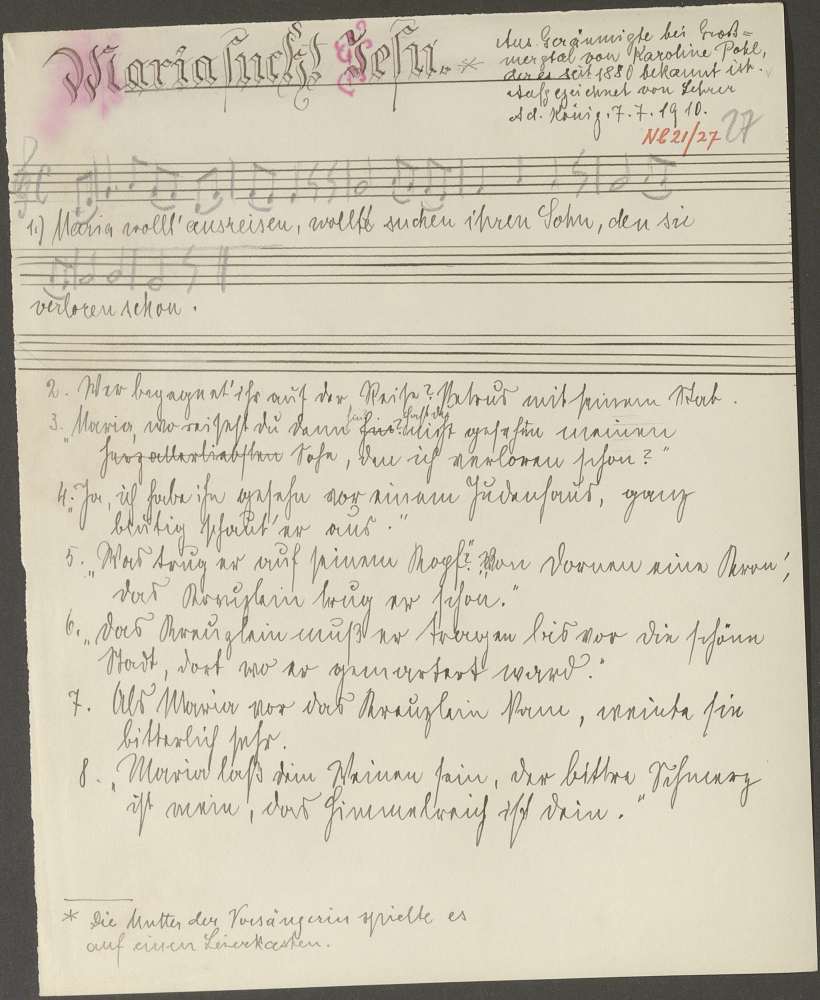 Maria sucht Jesu. *
Aus Geräumigte bei Groß=
mergtal von Karoline Pohl,
der es seit 1880 bekannt ist.
Aufgezeichnet von Lehrer
Ad. König. 7. 7. 1910.
NB 21/27 27
1.) Maria wollt' ausreisen, wollt suchen ihren Sohn, den sie
verloren schon.
2. Wer begegnet' ihr auf der Reise? Petrus mit seinem Stab.
3. „Maria, wo reisest du denn hin? Nicht gesehen meinen
herzallerliebsten Sohn, den ich verloren schon?"
4. „Ja, ich habe ihn gesehn vor einem Judenhaus, ganz
blutig schaut' er aus."
5. „Was trug er auf seinem Kopf?" „Von Dornen eine Kron',
das Kreuzlein trug er schon."
6. „Das Kreuzlein muß er tragen bis vor die schöne
Stadt, dort wo er gemartert ward."
7. Als Maria vor das Kreuzlein kam, weinte sie
bitterlich sehr.
8. „Maria laß dein Weinen sein, der bittre Schmerz
ist mein, das Himmelreich ist dein."
* Die Mutter der Vorsängerin spielte es
auf einen Leierkasten.